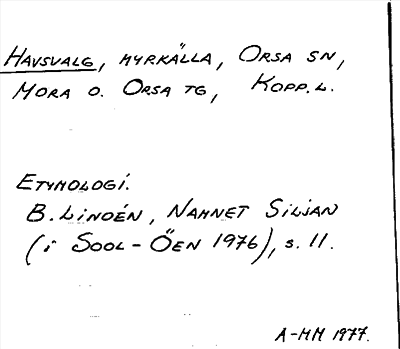 HAVSVALG, MYRKÄLLA, ORSA SN,
MORA O. ORSA TG, KOPP. L.
ETYMOLOGI.
B. LINDÉN, NAMNET SILJAN
(i SOOL-ÖEN 1976), s. 11.
A-MM 1977.